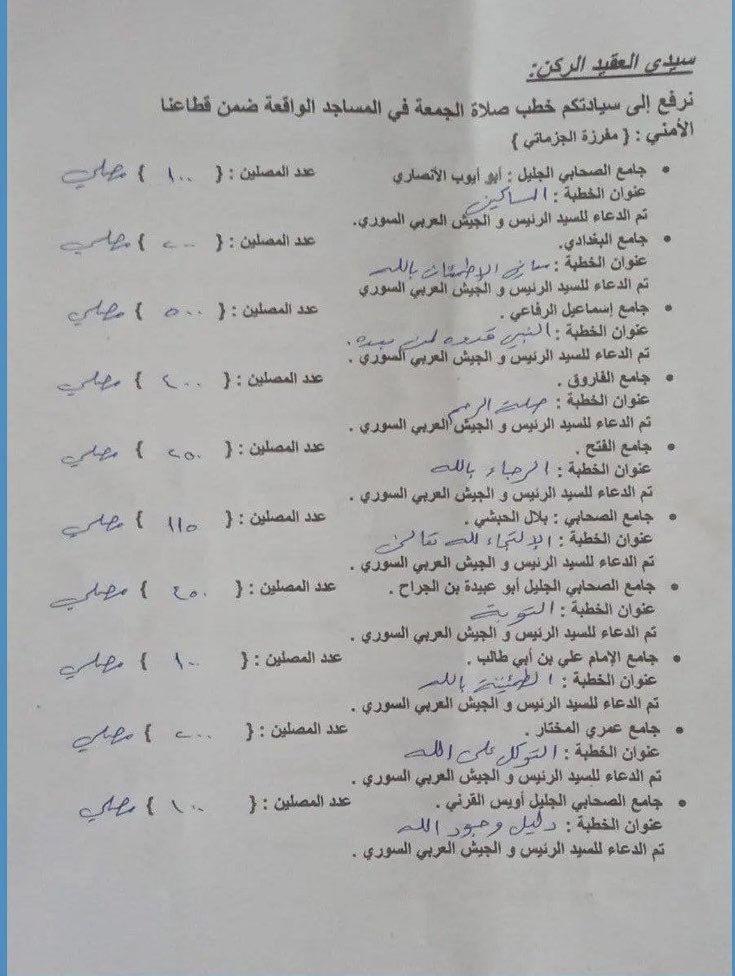 سيدي العقيد الركن:
نرفع إلى سيادتكم خطب صلاة الجمعة في المساجد الواقعة ضمن قطاعنا
الأمني : { مفرزة الجزماتي }
• جامع الصحابي الجليل : أبو أيوب الأنصاري عدد المصلين : { ١٠٠ } مصلي
عنوان الخطبة : المساكين
تم الدعاء للسيد الرئيس و الجيش العربي السوري.
• جامع البغدادي. عدد المصلين : { ٢٠٠ } مصلي
عنوان الخطبة : الإطمئنان بالله
تم الدعاء للسيد الرئيس و الجيش العربي السوري
• جامع إسماعيل الرفاعي . عدد المصلين : { ٥٠٠ } مصلي
عنوان الخطبة : النبي قدوه لمن بعده.
تم الدعاء للسيد الرئيس و الجيش العربي السوري .
• جامع الفاروق . عدد المصلين : { ٤٠٠ } مصلي
عنوان الخطبة : صلة الرحم
تم الدعاء للسيد الرئيس و الجيش العربي السوري .
• جامع الفتح . عدد المصلين : { ٢٥٠ } مصلي
عنوان الخطبة : الرجاء بالله
تم الدعاء للسيد الرئيس و الجيش العربي السوري .
• جامع الصحابي : بلال الحبشي . عدد المصلين : { ١١٥ } مصلي
عنوان الخطبة : الإلتجاء لله تعالى
تم الدعاء للسيد الرئيس و الجيش العربي السوري .
• جامع الصحابي الجليل أبو عبيدة بن الجراح . عدد المصلين : { ٤٥٠ } مصلي
عنوان الخطبة : التوبة
تم الدعاء للسيد الرئيس و الجيش العربي السوري .
• جامع الإمام علي بن أبي طالب . عدد المصلين : { ١٠٠ } مصلي
عنوان الخطبة : الطمئنينة بالله
تم الدعاء للسيد الرئيس و الجيش العربي السوري .
• جامع عمري المختار . عدد المصلين : { ٢٠٠ } مصلي
عنوان الخطبة : التوكل على الله
تم الدعاء للسيد الرئيس و الجيش العربي السوري .
• جامع الصحابي الجليل أويس القرني . عدد المصلين : { ١٠٠ } مصلي
عنوان الخطبة : دليل وجود الله
تم الدعاء للسيد الرئيس و الجيش العربي السوري .